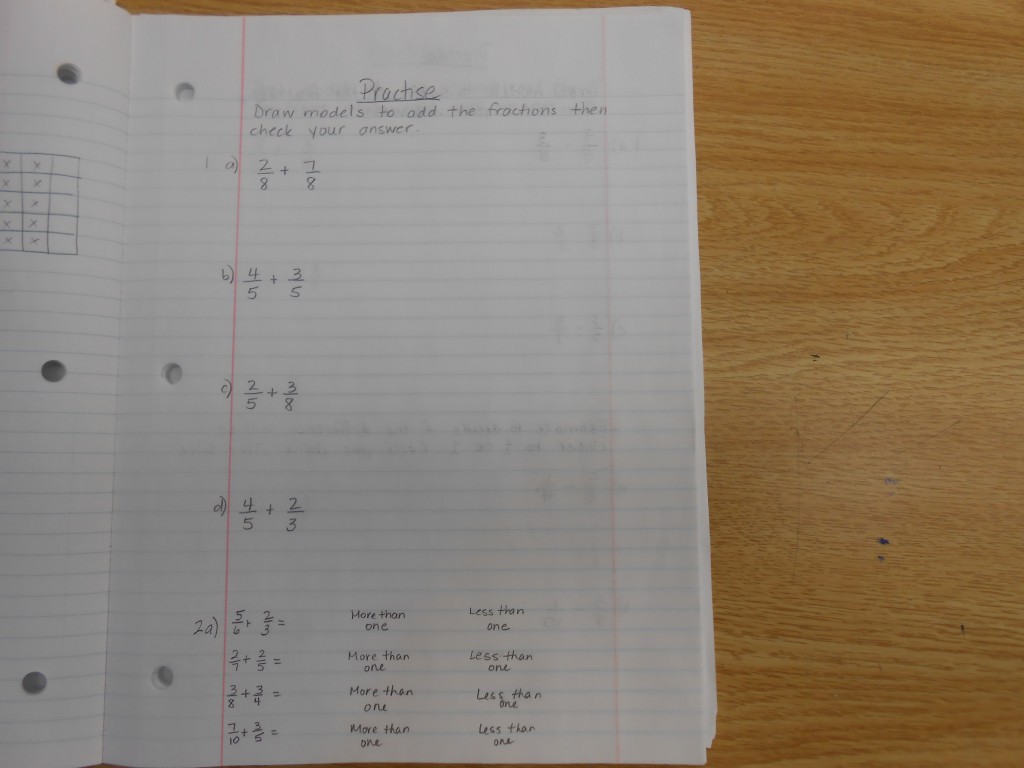 Practise
Draw models to add the fractions then
check your answer.
1 a) 2/8 + 7/8
b) 4/5 + 3/5
c) 2/5 + 3/8
d) 4/5 + 2/3
2a) 5/6 + 2/3 = More than one Less than one
2/7 + 2/5 = More than one Less than one
3/8 + 3/4 = More than one Less than one
7/10 + 3/5 = More than one Less than one